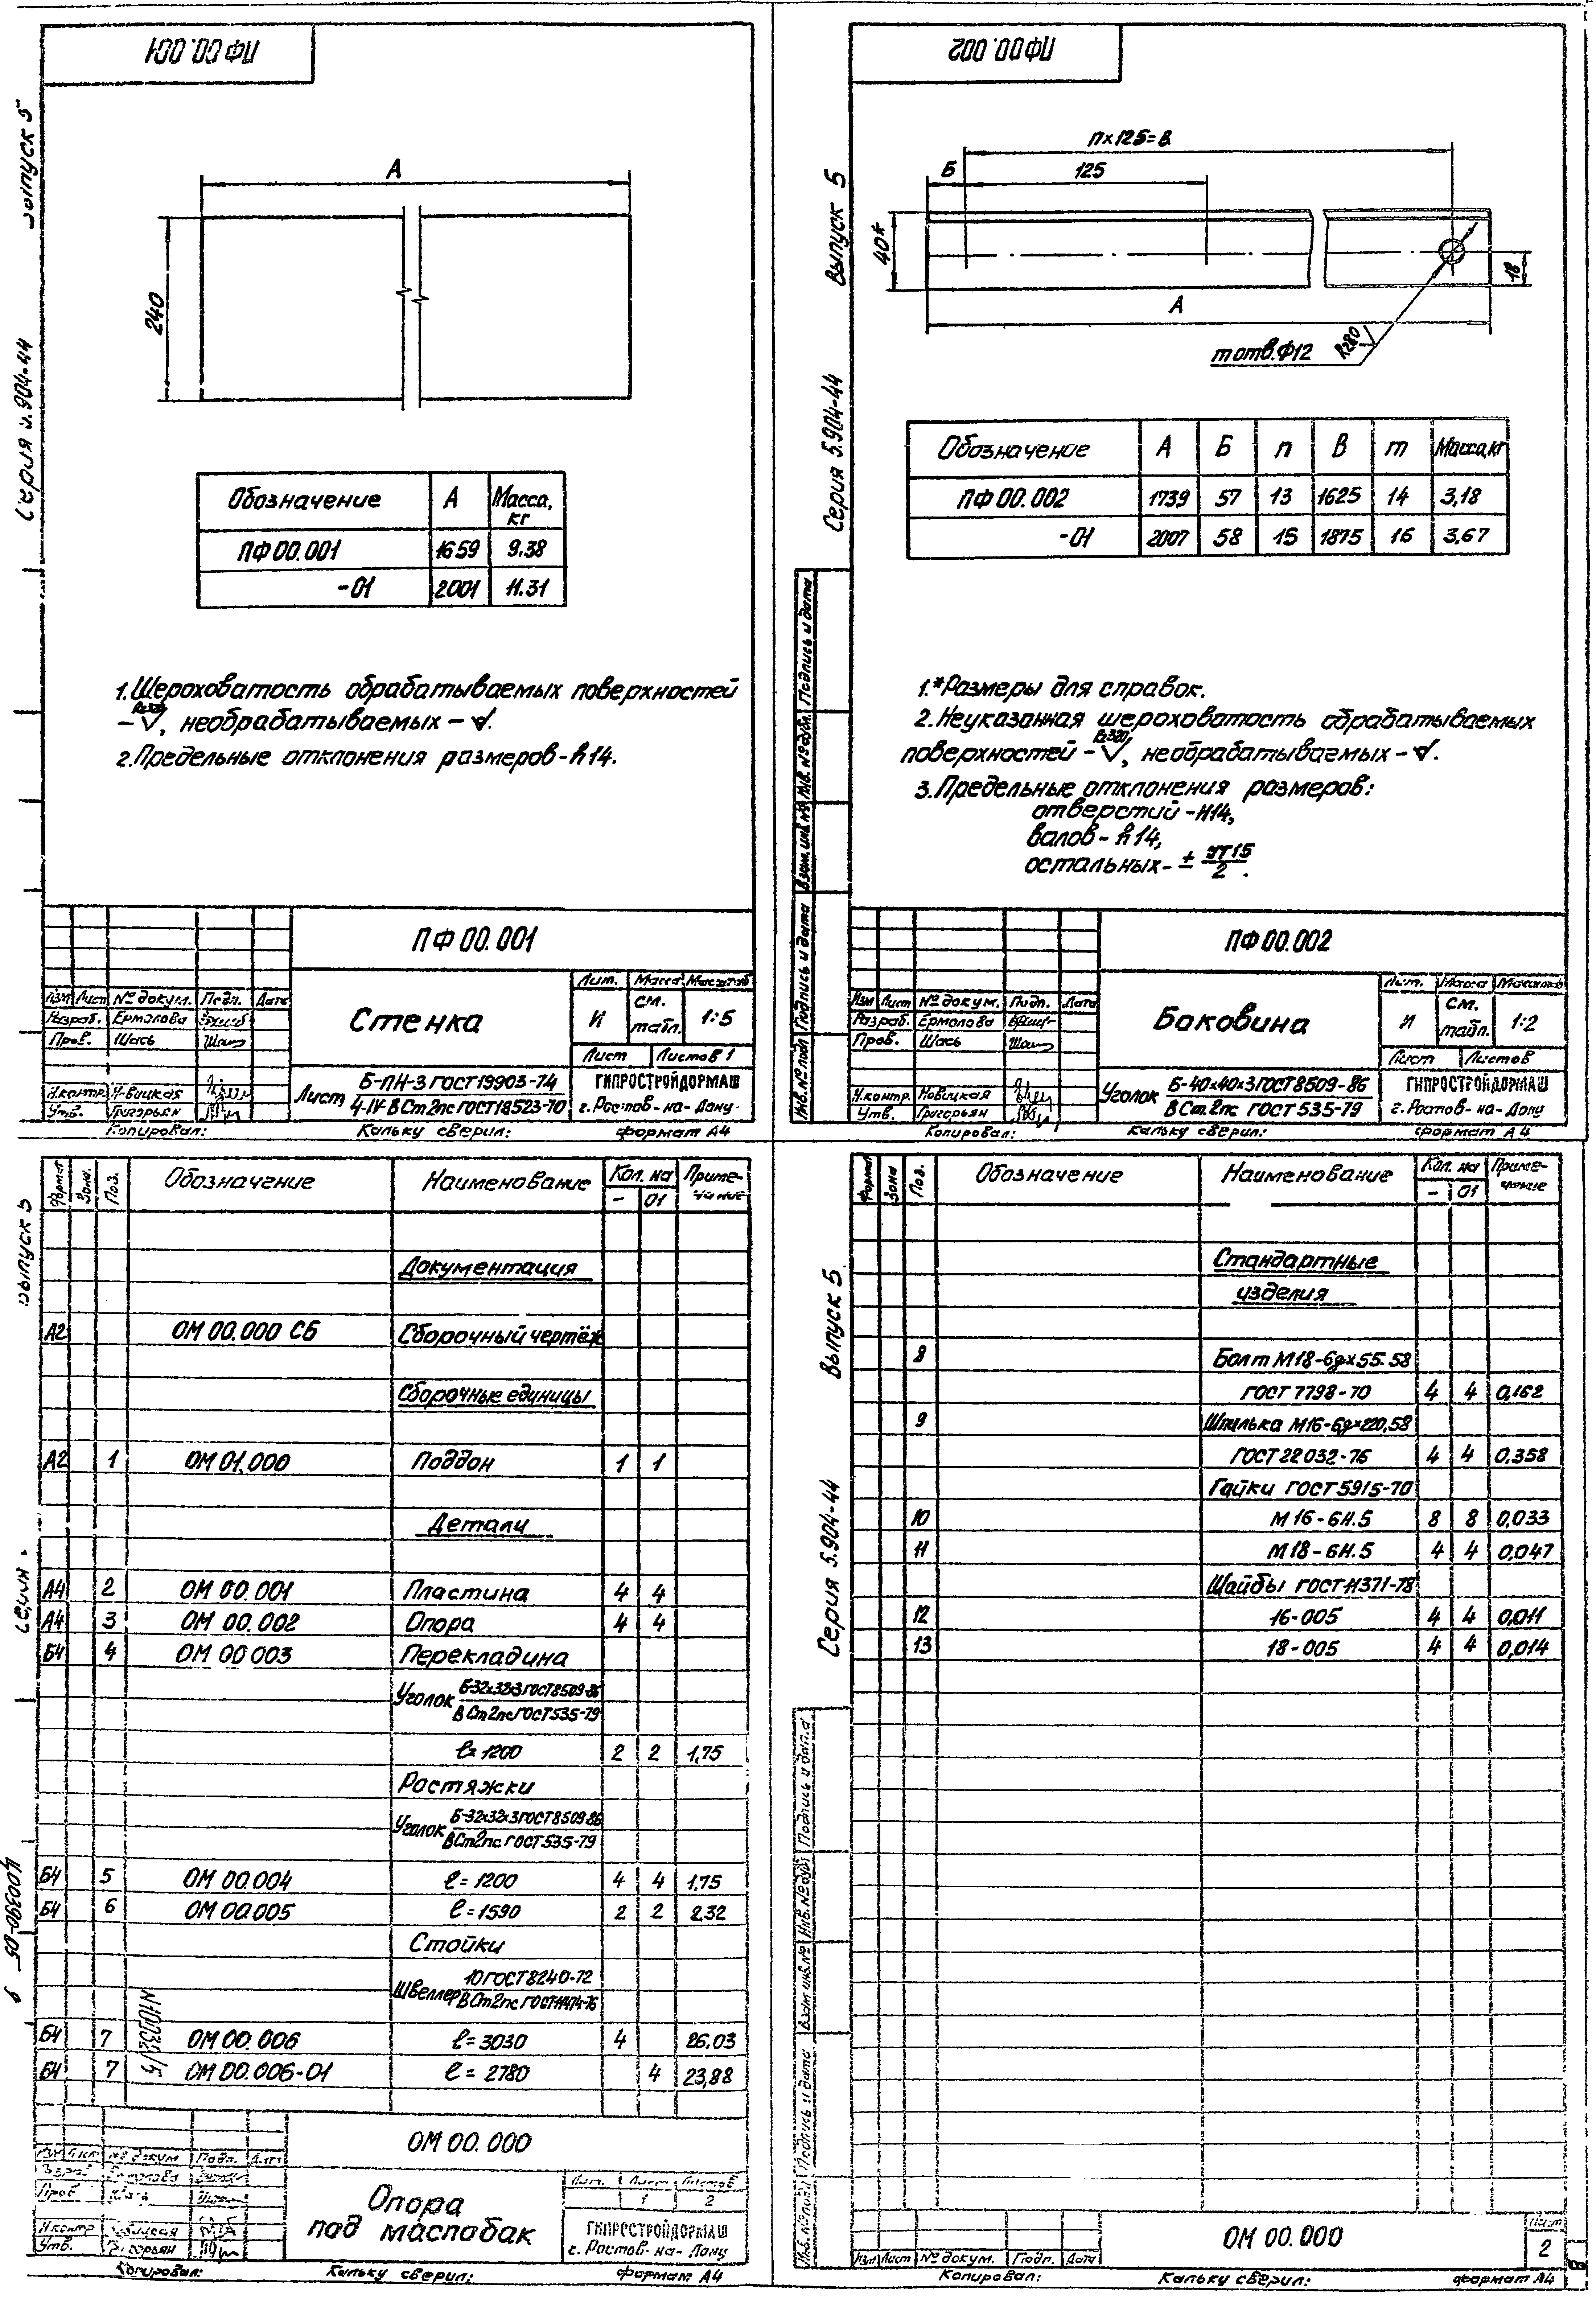 ПФ 00.001
Выпуск 5
Серия 5.904-44
А
240
Обозначение А Масса, кг
ПФ 00.001 1659 9.38
-01 2001 11.31
1. Шероховатость обрабатываемых поверхностей
- Rz320 √, необрабатываемых - √.
2. Предельные отклонения размеров - h14.
ПФ 00.001
Изм Лист № докум. Подп. Дата
Разраб. Ермолова
Пров. Шась
Н.контр. Новицкая
Утв. Григорьян
Стенка
Лит. Масса Масштаб
И см. табл. 1:5
Лист Листов 1
Лист Б-ПН-3 ГОСТ 19903-74
4-IV-В Ст 2пс ГОСТ 18523-70
ГИПРОСТРОЙДОРМАШ
г. Ростов-на-Дону
Копировал: Кальку сверил: формат А4
ПФ 00.002
Выпуск 5
Серия 5.904-44
n×125=В
Б 125
40*
18
А
m отв. Ф12
Rz80
Обозначение А Б n В m Масса, кг
ПФ 00.002 1739 57 13 1625 14 3,18
-01 2007 58 15 1875 16 3,67
1.*Размеры для справок.
2. Неуказанная шероховатость обрабатываемых
поверхностей - Rz320 √, необрабатываемых - √.
3. Предельные отклонения размеров:
отверстий - H14,
валов - h14,
остальных - ± IT15/2.
Инв. № подл Подпись и дата Взам. инв. № Инв. № дубл. Подпись и дата
ПФ 00.002
Изм Лист № докум. Подп. Дата
Разраб. Ермолова
Пров. Шась
Н.контр. Новицкая
Утв. Григорьян
Боковина
Лит. Масса Масштаб
И см. табл. 1:2
Лист Листов
Уголок Б-40х40х3 ГОСТ 8509-86
В Ст 2пс ГОСТ 535-79
ГИПРОСТРОЙДОРМАШ
г. Ростов-на-Дону
Копировал: Кальку сверил: формат А4
Выпуск 5
Серия
Формат Зона Поз. Обозначение Наименование Кол. на - 01 Примечание
Документация
А2 ОМ 00.000 СБ Сборочный чертёж
Сборочные единицы
А2 1 ОМ 01.000 Поддон 1 1
Детали
А4 2 ОМ 00.001 Пластина 4 4
А4 3 ОМ 00.002 Опора 4 4
Б4 4 ОМ 00 003 Перекладина
Уголок Б-32х32х3 ГОСТ 8509-86
В Ст2пс ГОСТ 535-79
ℓ=1200 2 2 1,75
Ростяжки
Уголок Б-32х32х3 ГОСТ 8509-86
В Ст2пс ГОСТ 535-79
Б4 5 ОМ 00.004 ℓ=1200 4 4 1.75
Б4 6 ОМ 00.005 ℓ=1590 2 2 2.32
Стойки
Швеллер 10 ГОСТ 8240-72
В Ст2пс ГОСТ 11474-76
Б4 7 ОМ 00.006 ℓ=3030 4 26.03
Б4 7 ОМ 00.006-01 ℓ=2780 4 23,88
ОМ 00.000
Изм Лист № докум Подп. Дат
Пров
Н.контр
Утв. Григорьян
Опора
под маслобак
Лит. Лист Листов
1 2
ГИПРОСТРОЙДОРМАШ
г. Ростов-на-Дону
Копировал: Кальку сверил: формат А4
Выпуск 5
Серия 5.904-44
Формат Зона Поз. Обозначение Наименование Кол. на - 01 Примечание
Стандартные
изделия
8 Болт М18-6g×55.58
ГОСТ 7798-70 4 4 0,162
9 Шпилька М16-6g×220,58
ГОСТ 22032-76 4 4 0.358
Гайки ГОСТ 5915-70
10 М16-6Н.5 8 8 0,033
11 М18-6Н.5 4 4 0,047
Шайбы ГОСТ 11371-78
12 16-005 4 4 0,011
13 18-005 4 4 0,014
Инв. № подл Подпись и дата Взам инв. № Инв. № дубл Подпись и дата
Изм Лист № докум. Подп. Дата
ОМ 00.000
Лист
2
Копировал: Кальку сверил: формат А4
8